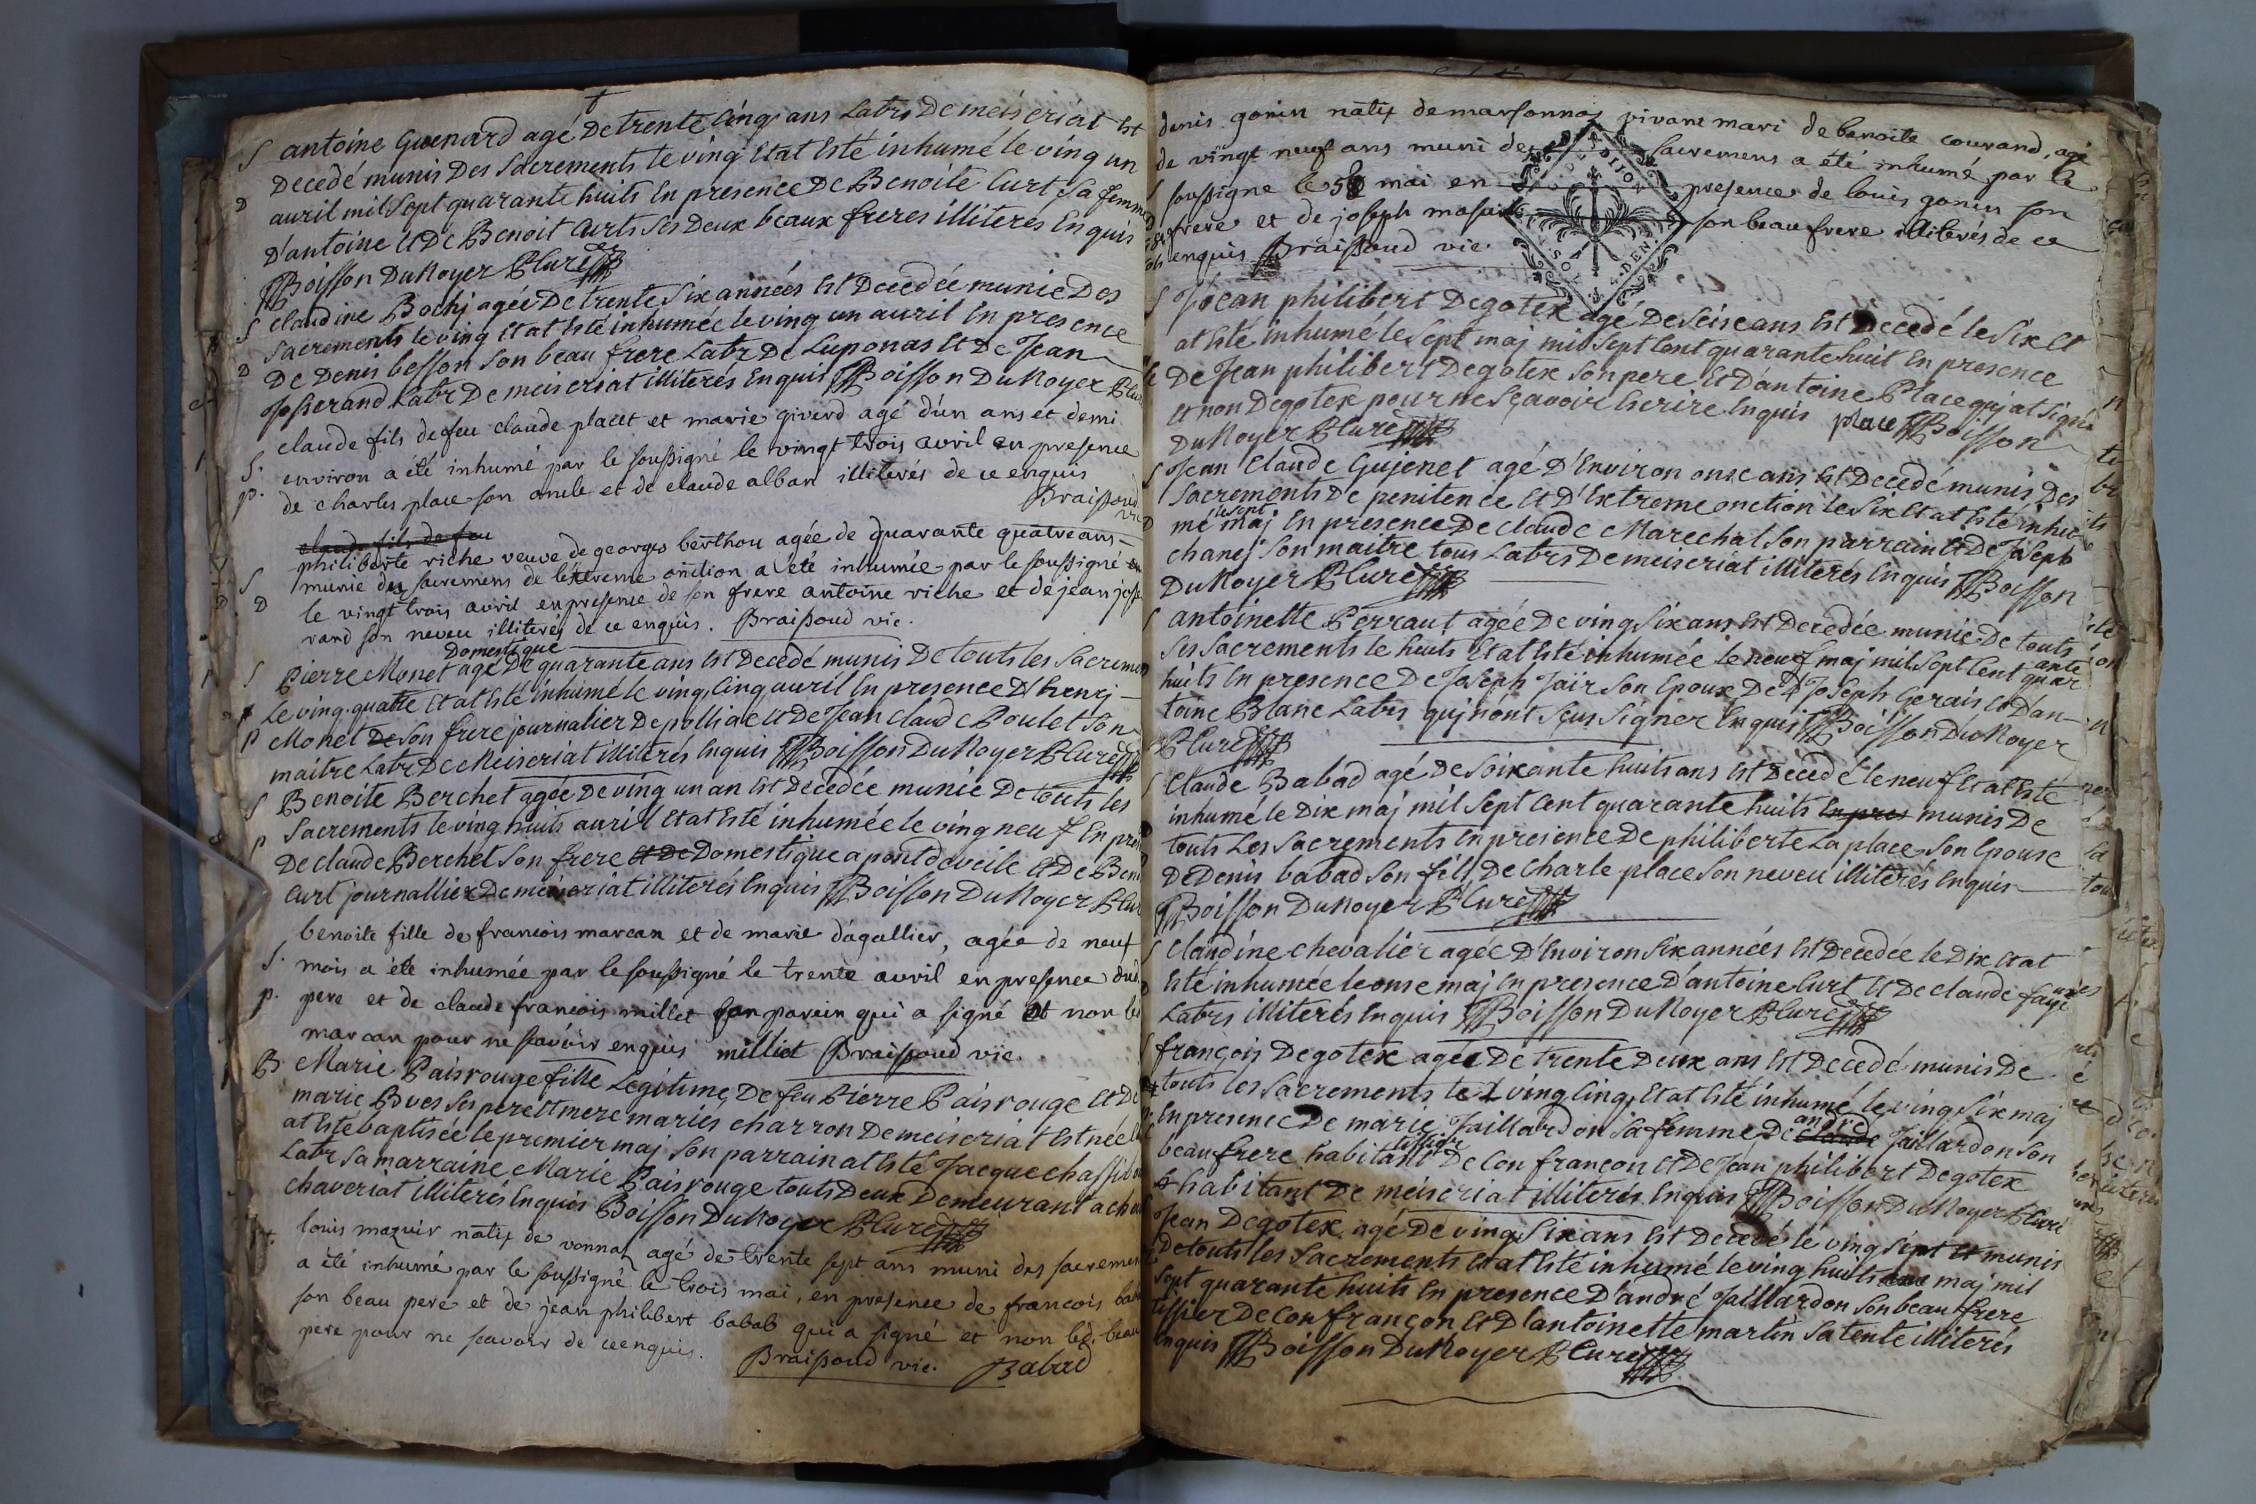 S antoine Guenard agé De trente Cinq ans Labrs De meiseriat Est
Decedé munis Des Sacrements le ving Et at Esté inhumé le ving un
D avril mil Sept quarante huits En presence De Benoite Curt Sa femme
D'antoine Et De Benoit Curts Ses Deux beaux freres illiterés Enquis
Boisson DuNoyer Curé
S Claudine Bochj agée De trente Six années Est Decedée munie Des
Sacrements le ving Et at Esté inhumée le ving un avril En presence
D De Denis besson Son beau frere Labr De Luponas Et De Jean
Josserand Labr De meiseriat illiterés Enquis Boisson DuNoyer
claude fils de feu claude placet et marie giverd agé d'un ans et demi
S. environ a été inhumé par le soussigné le vingt trois avril en presence
p. de charles place son oncle et de claude alban illiterés de ce enquis
Braissoud vic
claude fils de feu
philiberte riche veuve de georges berthou agée de quarante quatre ans
S munie des sacremens de l'extreme onction a été inhumée par le soussigné
D le vingt trois avril en presence de son frere antoine riche et de jean josse
rand son neveu illiterés de ce enquis. Braissoud vic.
Domestique
S Pierre Monet agé De quarante ans Est Decedé munis De touts les Sacremen
Le ving quatre Et at Esté inhumé le ving Cinq avril En presence D'henrj
p Monet De Son frere journalier De polliac Et De Jean Claude Poulet Son
maitre Labr De Meiseriat illiterés Enquis Boisson DuNoyer Curé
S Benoite Berchet agée De ving un an Est Decedée munie De touts les
p Sacrements le ving huits avril Et at Esté inhumée le ving neuf En pres
De claude Berchet Son frere Et De Domestique a pont deveile Et De Ben
Curt journallier De meiseriat illiterés Enquis Boisson DuNoyer
benoite fille de francois marcan et de marie dagallier, agée de neuf
S. mois a été inhumée par le soussigné le trente avril en presence dud.
p. pere et de claude francois millet son parein qui a signé et non led
marcan pour ne scavoir enquis milliet Braissoud vic.
B Marie Paisrouge fille Legitime De feu Pierre Paisrouge Et De
marie Bves Ses pere Et mere mariés charron De meiseriat Est née
at Esté baptisée le premier maj Son parrain at Esté Jacque chassi
Labr Sa marraine Marie Paisrouge touts Deux Demeurant a cha
chaveriat illiterés Enquis Boisson DuNoyer Curé
louis mazuir natif de vonnaz agé de trente sept ans muni des sacremen
a été inhumé par le soussigné le trois mai, en presence de francois bab
son beau pere et de jean philibert babab qui a signé et non led. beau
pere pour ne scavoir de ce enquis. Braissoud vic. Babad
denis gonin natif de marsonnaz vivant mari de benoite courand, agé
de vingt neuf ans muni des sacremens a été inhumé par le
soussigne le 5 mai en presence de louis gonin son
frere et de joseph mapuit son beau frere illiterés de ce
enquis Braissoud vic.
DIJON
SOL DEN
S Jean philibert Degotex agé De Seise ans Est Decedé le Six Et
at Esté inhumé le Sept maj mil Sept Cent quarante huit En presence
De Jean philibert Degotex Son pere Et D'antoine Place quj at Signé
Et non Degotex pour ne Sçavoir Escrire Enquis place Boisson
DuNoyer Curé
S Jean Claude Gujenet agé D'Environ onse ans Est Decedé munis Des
Sacrements De penitence Et D'Extreme onction le Six Et at Esté inhu
le sept
D mé maj En presence De claude Marechal Son parrain Et De Joseph
chanej Son maitre tous Labrs De meiseriat illiterés Enquis Boisson
DuNoyer Curé
S antoinette Perraut agée De ving Six ans Est Decedée munie De touts
Ses Sacrements le huits Et at Esté inhumée le neuf maj mil Sept Cent quarante
huits En presence De Joseph Jaïr Son Epoux De Joseph Gerais Et D'an
toine Blanc Labrs quj nont Sçus Signer Enquis Boisson DuNoyer
Curé
S Claude Babad agé De Soixante huits ans Est Decedé le neuf Et at Esté
inhumé le Dix maj mil Sept Cent quarante huits En pres munis De
touts Les Sacrements En presence De philiberte Laplace Son Epouse
De Denis babad Son fils De Charle place Son neveu illiterés Enquis
Boisson DuNoyer Curé
S Claudine Chevalier agée D'Environ Six années Est Decedée le Dix Et at
D Esté inhumée le onse maj En presence D'antoine Curt Et De claude
Labrs illiterés Enquis Boisson DuNoyer Curé
S françois Degotex agée De trente Deux ans Est Decedé munis De
touts les Sacrements le ving Cinq Et at Esté inhumé le ving Six maj
andré
En presence De marie Jaillardon Sa femme De claude Jaillardon Son
tissier
beau frere habitant De Confrançon Et De Jean philibert Degotex
habitant De meiseriat illiterés Enquis Boisson DuNoyer Curé
Jean Degotex agé De ving Six ans Est Decedé le ving Sept Et munis
De touts les Sacrements Et at Esté inhumé le ving huits maj mil
Sept quarante huits En presence D'andré Jaillardon Son beau frere
tissier De Confrançon Et D'antoinette martin Sa tente illiterés
Enquis Boisson DuNoyer Curé